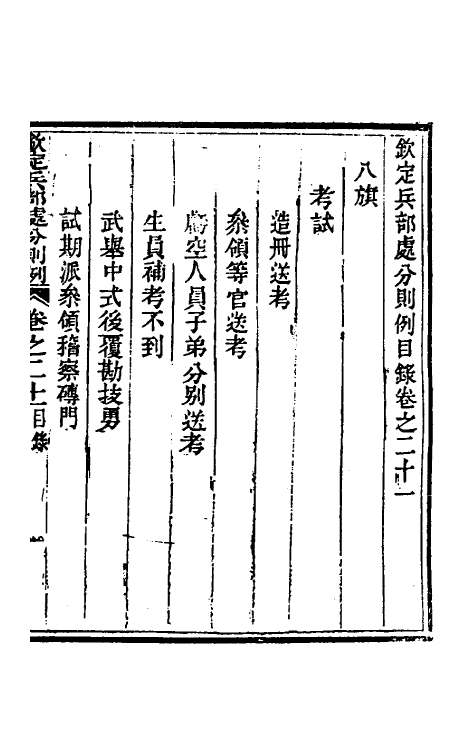 欽定兵部處分則例目錄卷之二十一
八旗
考試
造冊送考
叅領等官送考
虧空人員子弟分別送考
生員補考不到
武舉中式後覆勘技勇
試期派叅領稽察磚門
欽定兵部處分則例 卷之二十一目錄